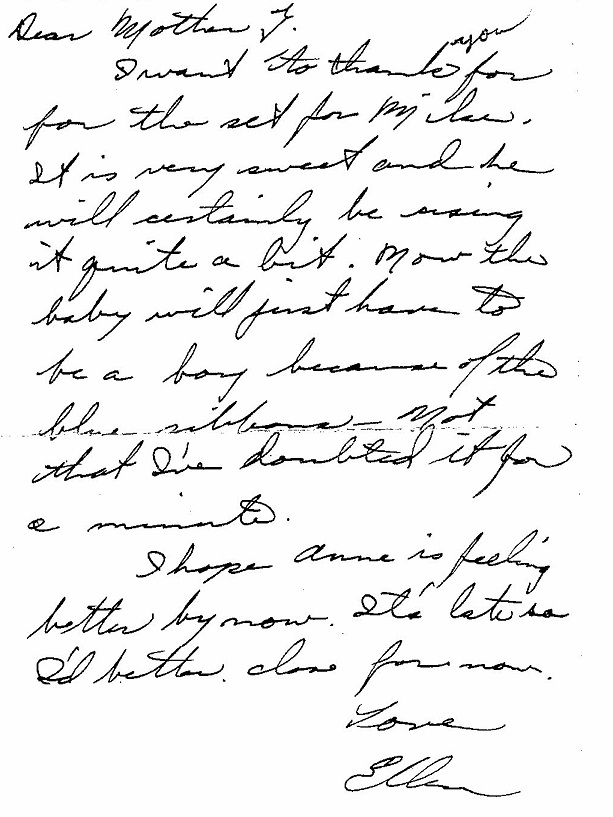 Dear Mother J.
I want to thank you for
for the set for Mike.
It is very sweet and he
will certainly be using
it quite a bit. Now the
baby will just have to
be a boy because of the
blue ribbons - Not
that I've doubted it for
a minute.
I hope Anne is feeling
better by now. It's late so
I'd better close for now.
Love
Ellen